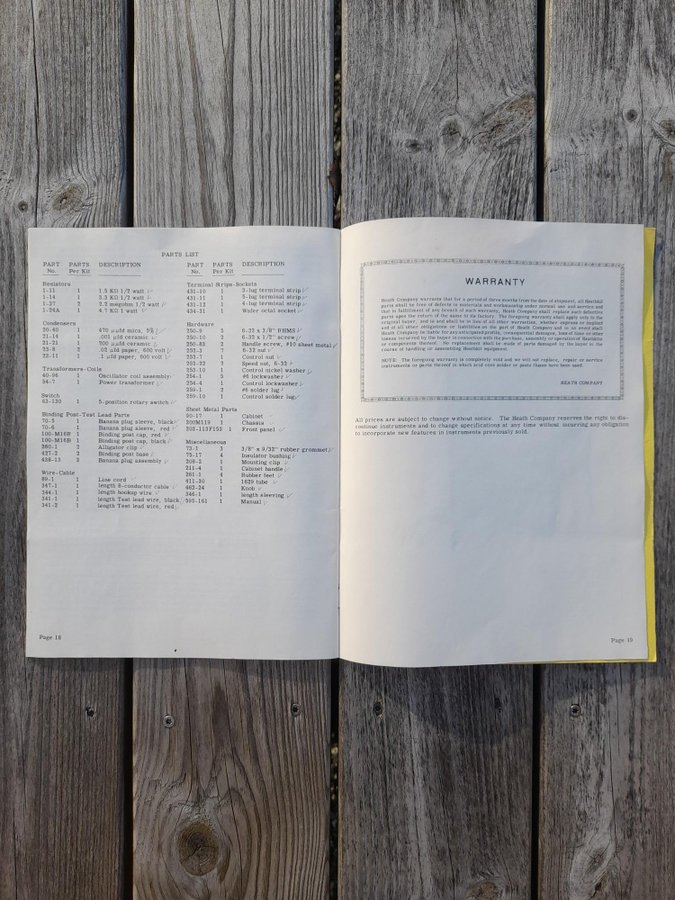 PARTS LIST
PART PARTS DESCRIPTION
No. Per Kit
Resistors
1-11 1 1.5 KΩ 1/2 watt
1-14 1 3.3 KΩ 1/2 watt
1-37 2 2.2 megohm 1/2 watt
1-24A 1 4.7 KΩ 1 watt
Condensers
20-40 1 470 μμfd mica, 5%
21-14 1 .001 μfd ceramic
21-21 1 200 μμfd ceramic
23-8 2 μfd paper, 600 volt
22-11 1 .1 μfd paper, 600 volt
Transformers-Coils
40-96 1 Oscillator coil assembly
54-7 1 Power transformer
Switch
63-130 1 5-position rotary switch
Binding Post-Test Lead Parts
70-5 1 Banana plug sleeve, black
70-6 1 Banana plug sleeve, red
100-M16R 1 Binding post cap, red
100-M16B 1 Binding post cap, black
260-1 2 Alligator clip
427-2 2 Binding post base
438-13 2 Banana plug assembly
Wire-Cable
89-1 1 Line cord
347-1 1 length 8-conductor cable
344-1 1 length hookup wire
341-1 1 length Test lead wire, black
341-2 1 length Test lead wire, red
PART PARTS DESCRIPTION
No. Per Kit
Terminal Strips-Sockets
431-10 1 3-lug terminal strip
431-11 1 5-lug terminal strip
431-12 1 4-lug terminal strip
434-31 1 Wafer octal socket
Hardware
250-9 6-32 x 3/8" RHMS
250-10 2 6-32 x 1/2" screw
250-83 2 Handle screw, #10 sheet metal
252-3 7 6-32 nut
252-7 1 Control nut
252-22 2 Speed nut, 6-32
253-10 1 Control nickel washer
254-1 5 #6 lockwasher
254-4 1 Control lockwasher
259-1 2 #6 solder lug
259-10 1 Control solder lug
Sheet Metal Parts
90-17 1 Cabinet
1 Chassis
1 Front panel
Miscellaneous
73-1 3 3/8" x 9/32" rubber grommet
75-17 4 Insulator bushing
208-2 1 Mounting clip
211-4 1 Cabinet handle
261-1 4 Rubber feet
411-30 1 1629 tube
462-24 1 Knob
346-1 1 length sleeving
595-161 1 Manual
Page 18
WARRANTY
Heath Company warrants that for a period of three months from the date of shipment, all Heathkit
parts shall be free of defects in materials and workmanship under normal use and service and
that in fulfillment of any breach of such warranty, Heath Company shall replace such defective
parts upon the return of the same to its factory. The foregoing warranty shall apply only to the
original buyer, and is and shall be in lieu of all other warranties, whether express or implied
and of all other obligations or liabilities on the part of Heath Company and in no event shall
Heath Company be liable for any anticipated profits, consequential damages, loss of time or other
losses incurred by the buyer in connection with the purchase, assembly or operation of Heathkits
or components thereof. No replacement shall be made of parts damaged by the buyer in the
course of handling or assembling Heathkit equipment.
NOTE: The foregoing warranty is completely void and we will not replace, repair or service
instruments or parts thereof in which acid core solder or paste fluxes have been used.
HEATH COMPANY
All prices are subject to change without notice. The Heath Company reserves the right to dis-
continue instruments and to change specifications at any time without incurring any obligation
to incorporate new features in instruments previously sold.
Page 19